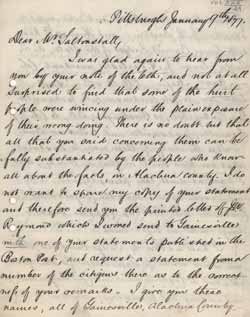 Pittsburgh January 17th 1877.
Dear Mr. Saltonstall,
I was glad again to hear from
you by your note of the 16th, and not at all
surprised to find that some of the
people were wincing under the plain exposure
of their wrong doing. There is no doubt but that
all that you said concerning them can be
fully substantiated by the people who know
all about the facts, in Alachua County. I do
not want to spare my copy of your statement
and therefore send you the printed letter of
which I would send to Gainesville
with one of your statements published in the
Boston Post, and request a statement from a
number of the citizens there as to the correct-
ness of your remarks. I give you these
names, all of Gainesville, Alachua County